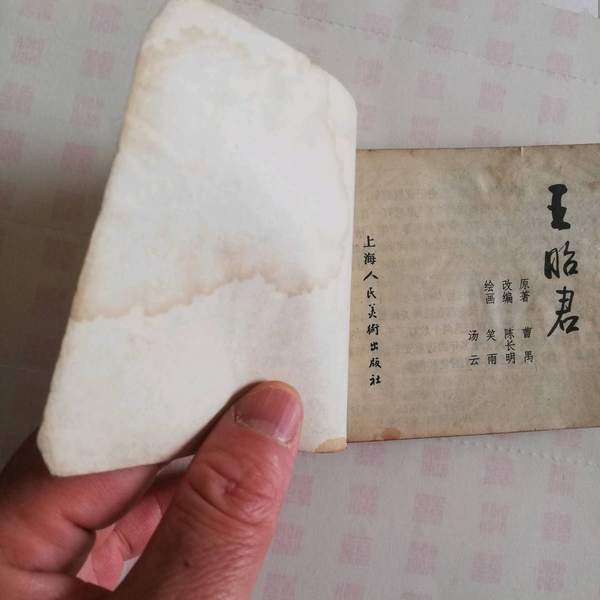 王昭君
原著 曹禺
改编 陈长明
绘画 笑雨
汤云
上海人民美術出版社